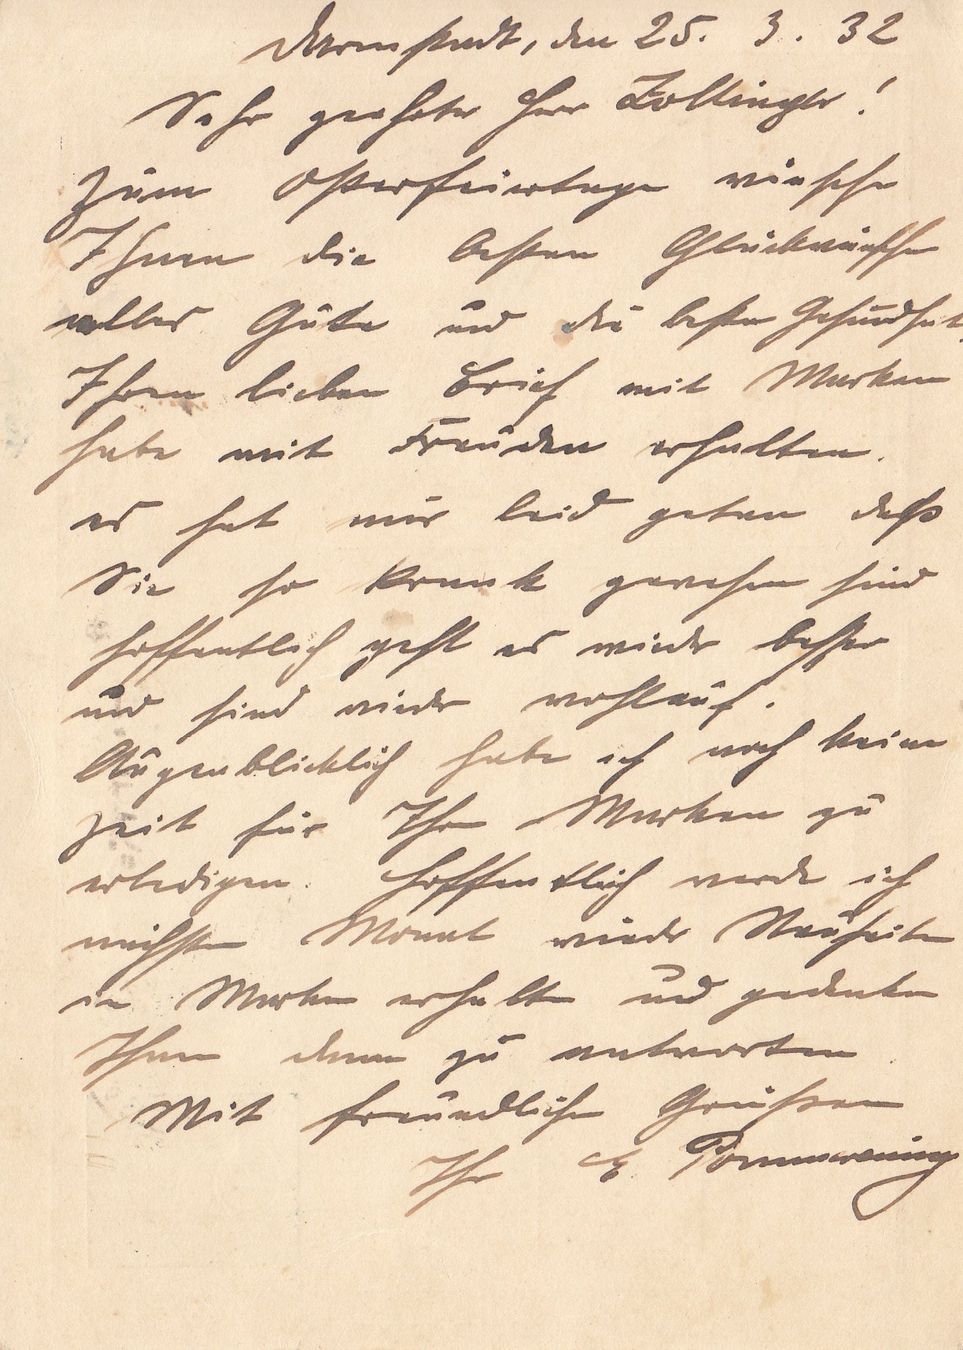 Darmstadt, den 25. 3. 32
Sehr geehrter Herr Zollinger!
Zum Osterfeiertage wünsche
Ihnen die besten Glückwünsche
alles Gute und die beste Gesundheit,
Ihren lieben Brief mit Marken
habe mit Freuden erhalten.
es hat mir leid getan daß
Sie so krank gewesen sind
hoffentlich geht es wieder besser
und sind wieder wohlauf.
Augenblicklich habe ich noch keine
Zeit für Ihre Marken zu
erledigen. Hoffentlich werde ich
nächsten Monat wieder Neuheiten
in Marken erhalten und gedenke
Ihnen dann zu antworten
Mit freundlichen Grüßen
Ihr E.